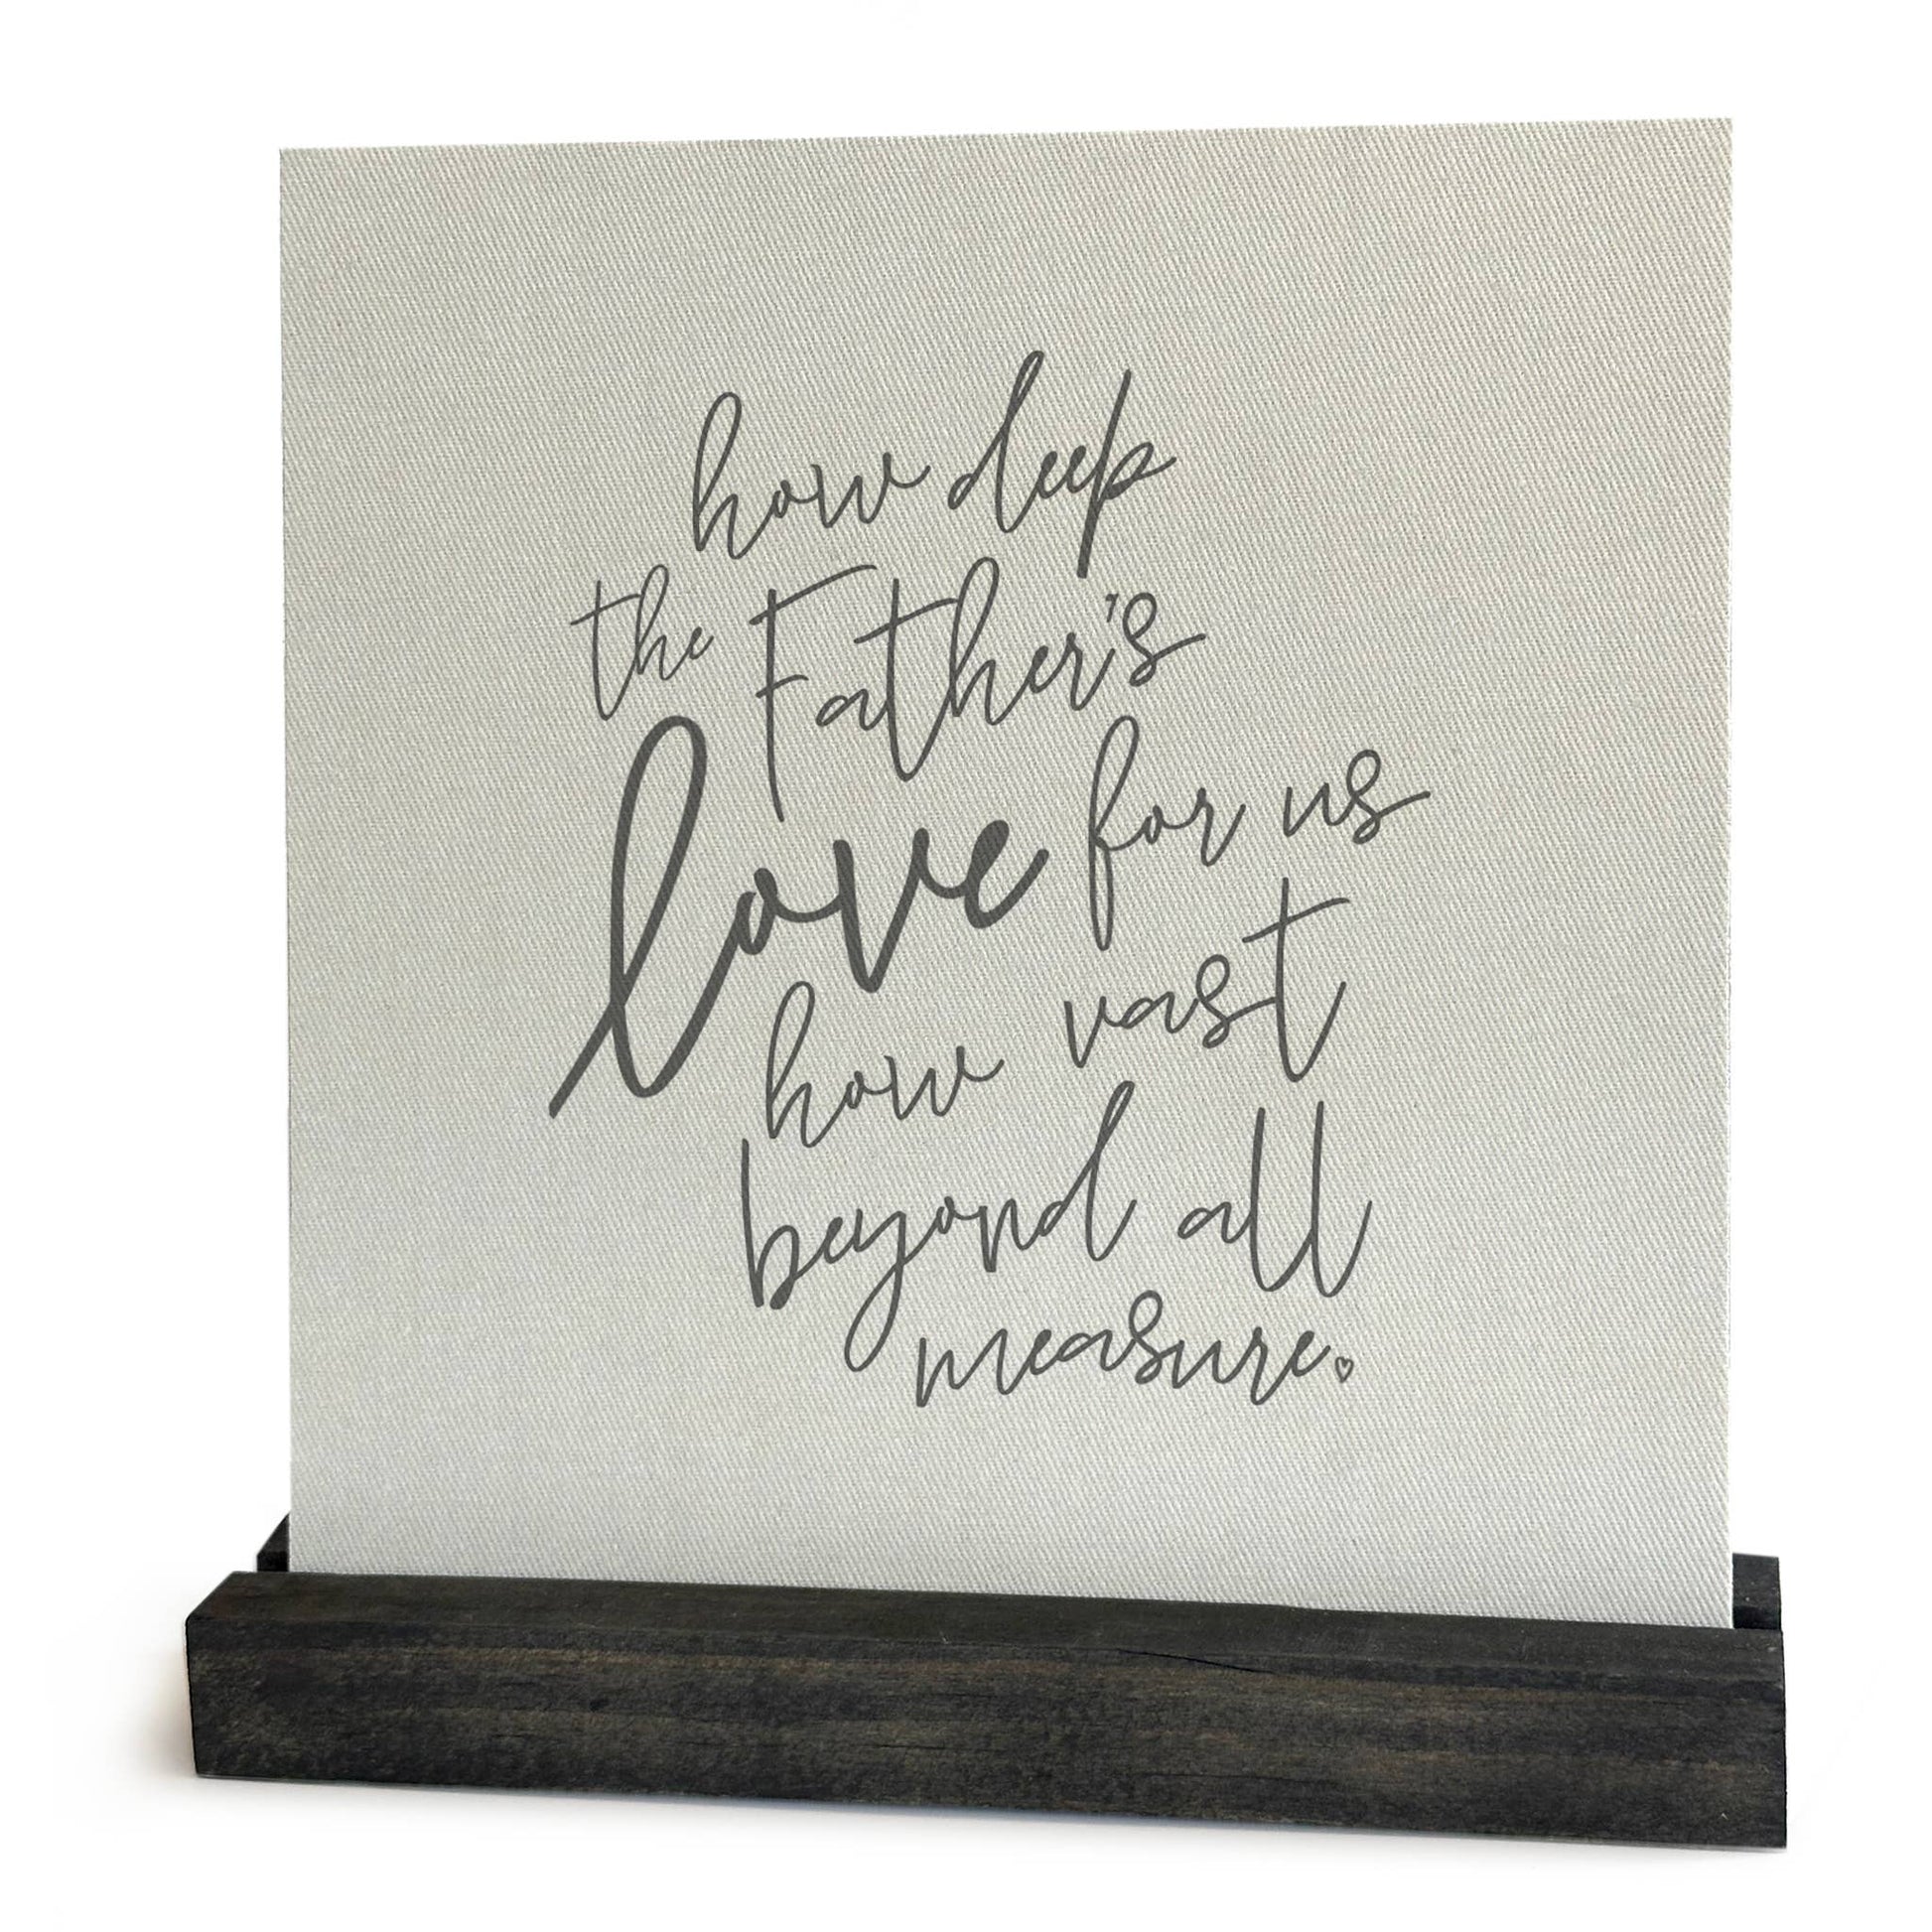 how deep
the Father's
love for us
how vast
beyond all
measure.